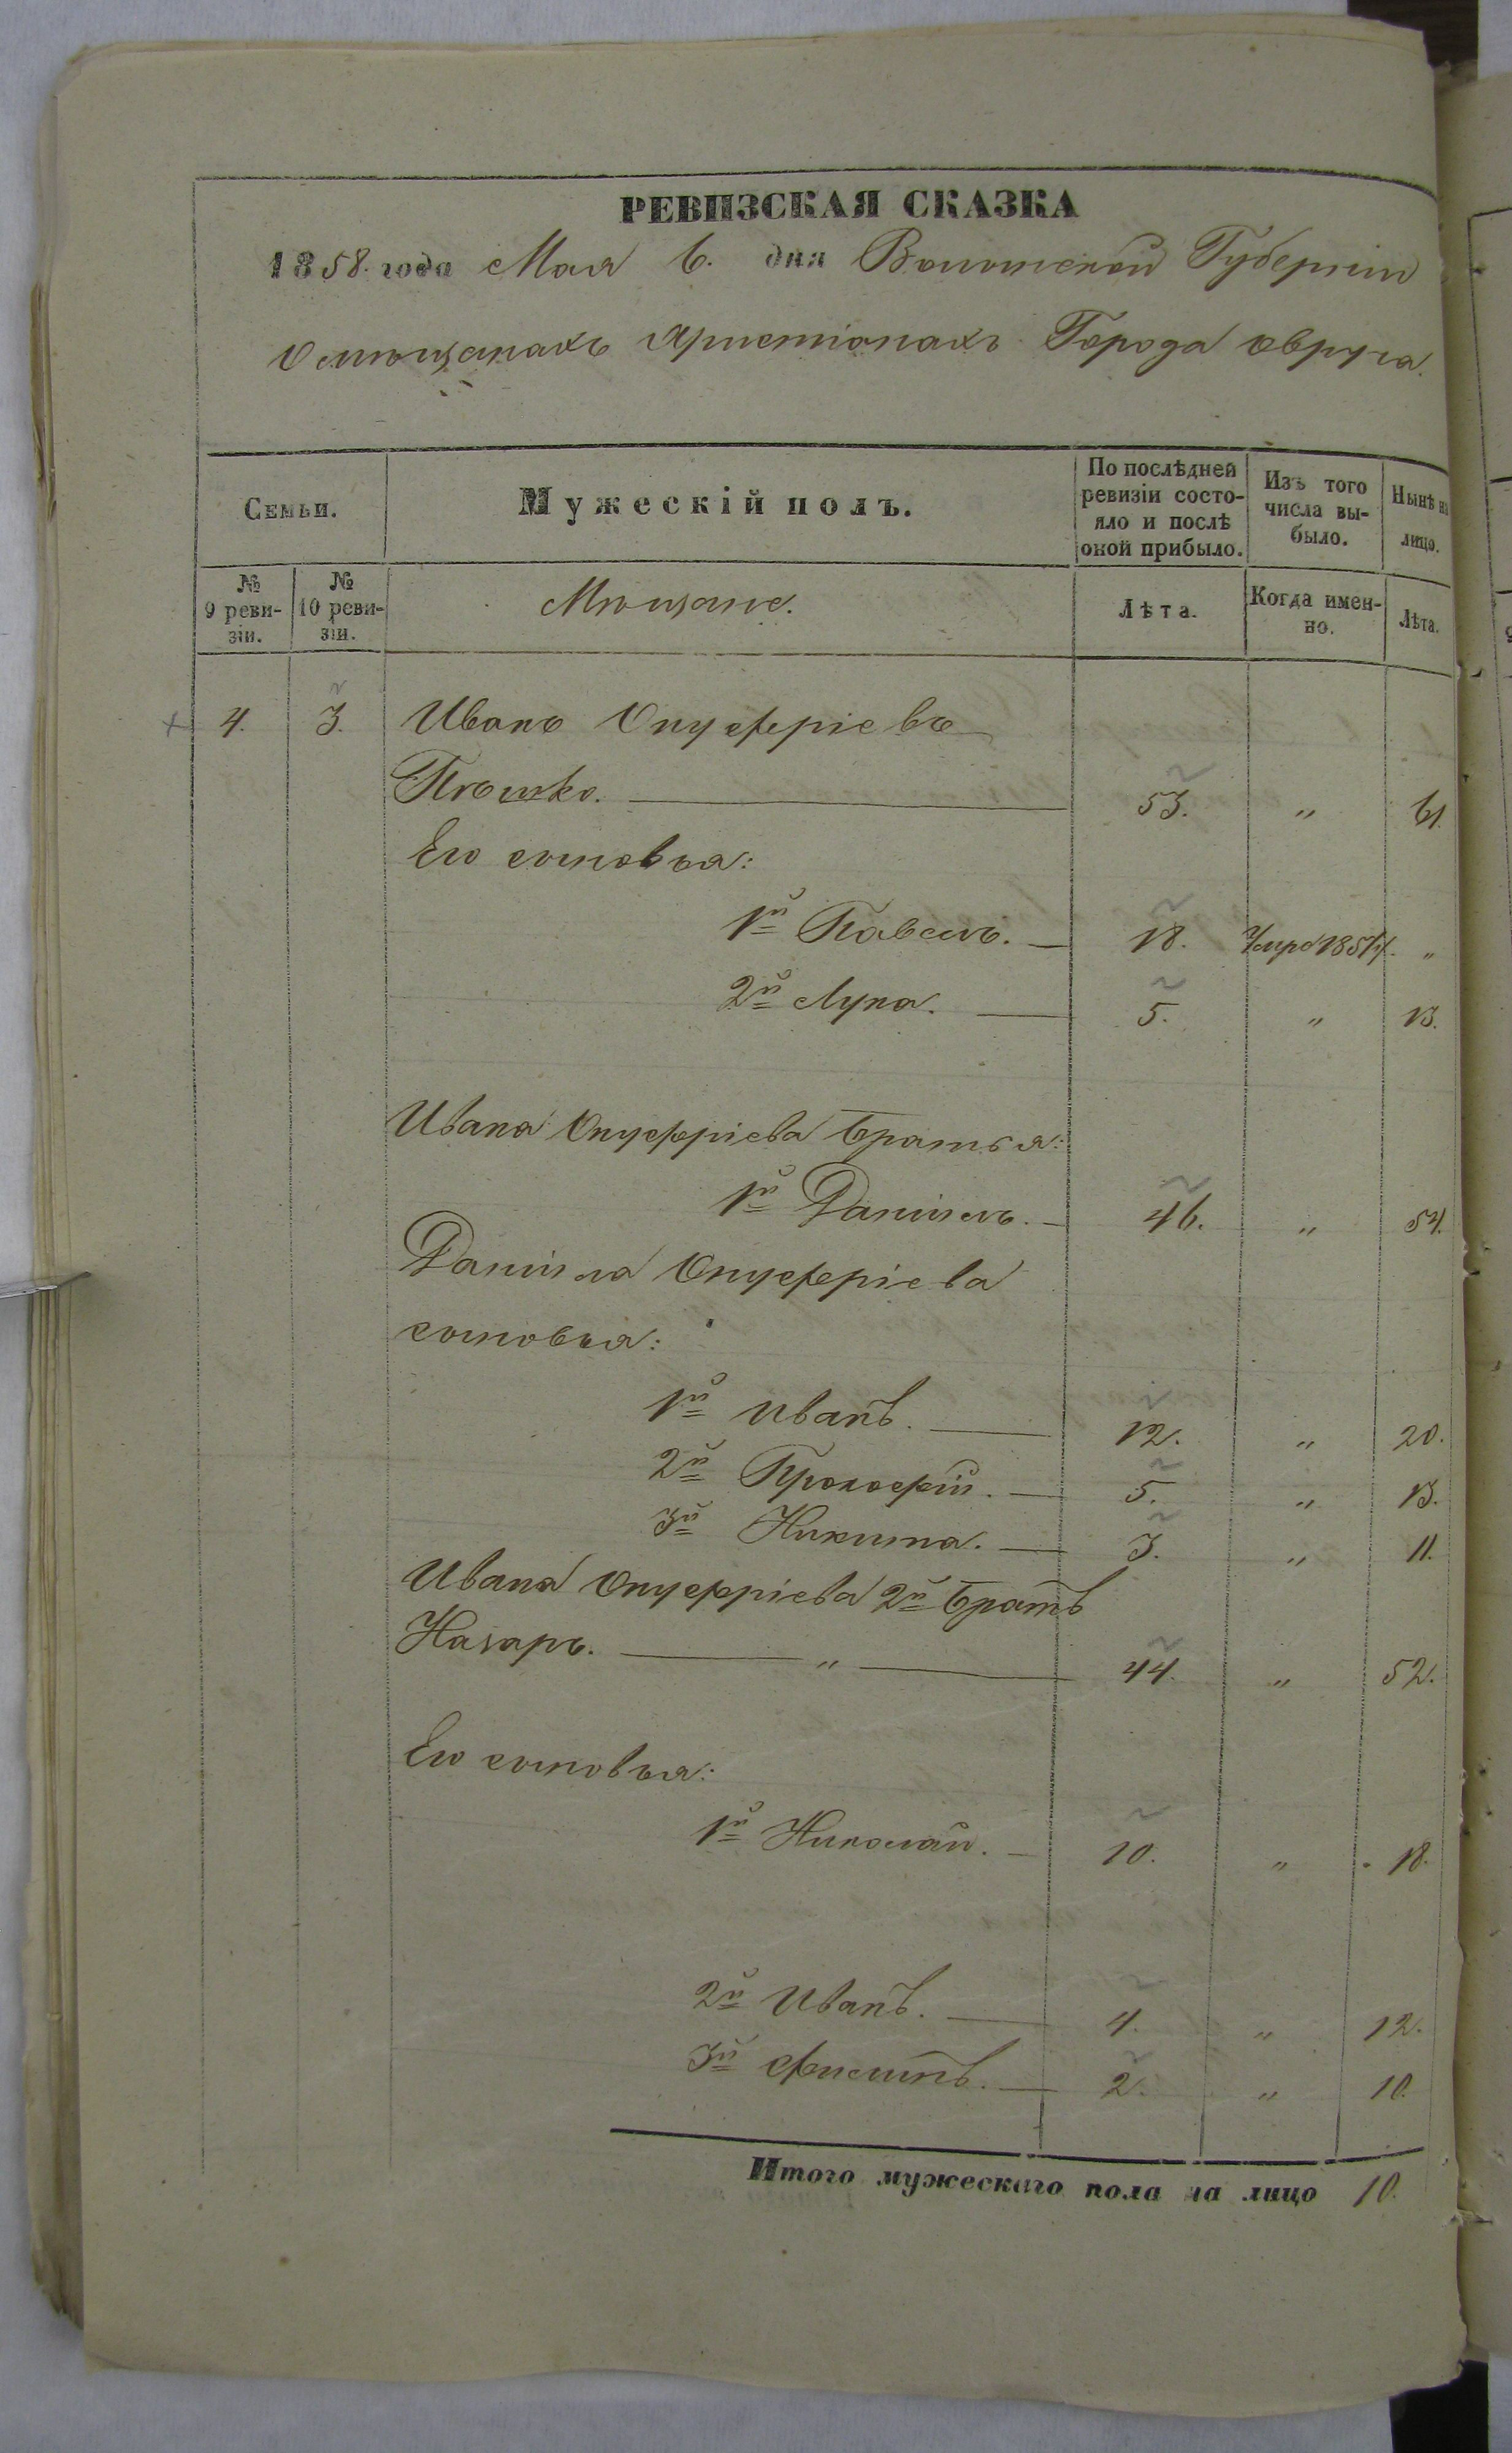 РЕВИЗСКАЯ СКАЗКА
1858. года Мая 6. дня Волынской Губерніи
О мѣщанахъ Христіанахъ Города Овруча.
Семьи.
Мужескій полъ.
По послѣдней ревизіи состояло и послѣ оной прибыло.
Изъ того числа выбыло.
Нынѣ на лицо.
№ 9 ревизіи.
№ 10 ревизіи.
Мѣщане.
Лѣта.
Когда именно.
Лѣта.
4. 3. Иванъ Онуфріевъ
Пѣшко. 53. " 61.
Его сыновья:
1й Павелъ. 18. Умре 1857 г. "
2й Лука. 5. " 13.
Ивана Онуфріева братья:
1й Даніилъ. 46. " 54.
Даніила Онуфріева
сыновья:
1й Иванъ. 12. " 20.
2й Прокофій. 5. " 13.
3й Никита. 3. " 11.
Ивана Онуфріева 2й братъ
Назаръ. " 44. " 52.
Его сыновья:
1й Николай. 10. " 18.
2й Иванъ. 4. " 12.
3й 2. " 10.
Итого мужескаго пола на лицо 10.